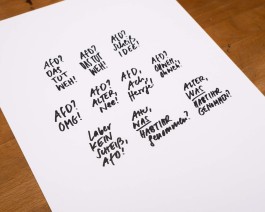 AFD?
DAS
TUT
WEH!
AFD?
DAS TUT
WEH!
AFD?
Scheiß
IDEE!
AFD?
OMG!
AFD?
ALTER,
Nee!
AFD,
Ach,
Herrje!
AFD?
OHWEH
ohwei!
Laber
KEIN
SCHEIß,
AFD!
Ahu,
WAS
HABT IHR
genommen?
ALTER,
WAS
HABT IHR
GENOMMEN?